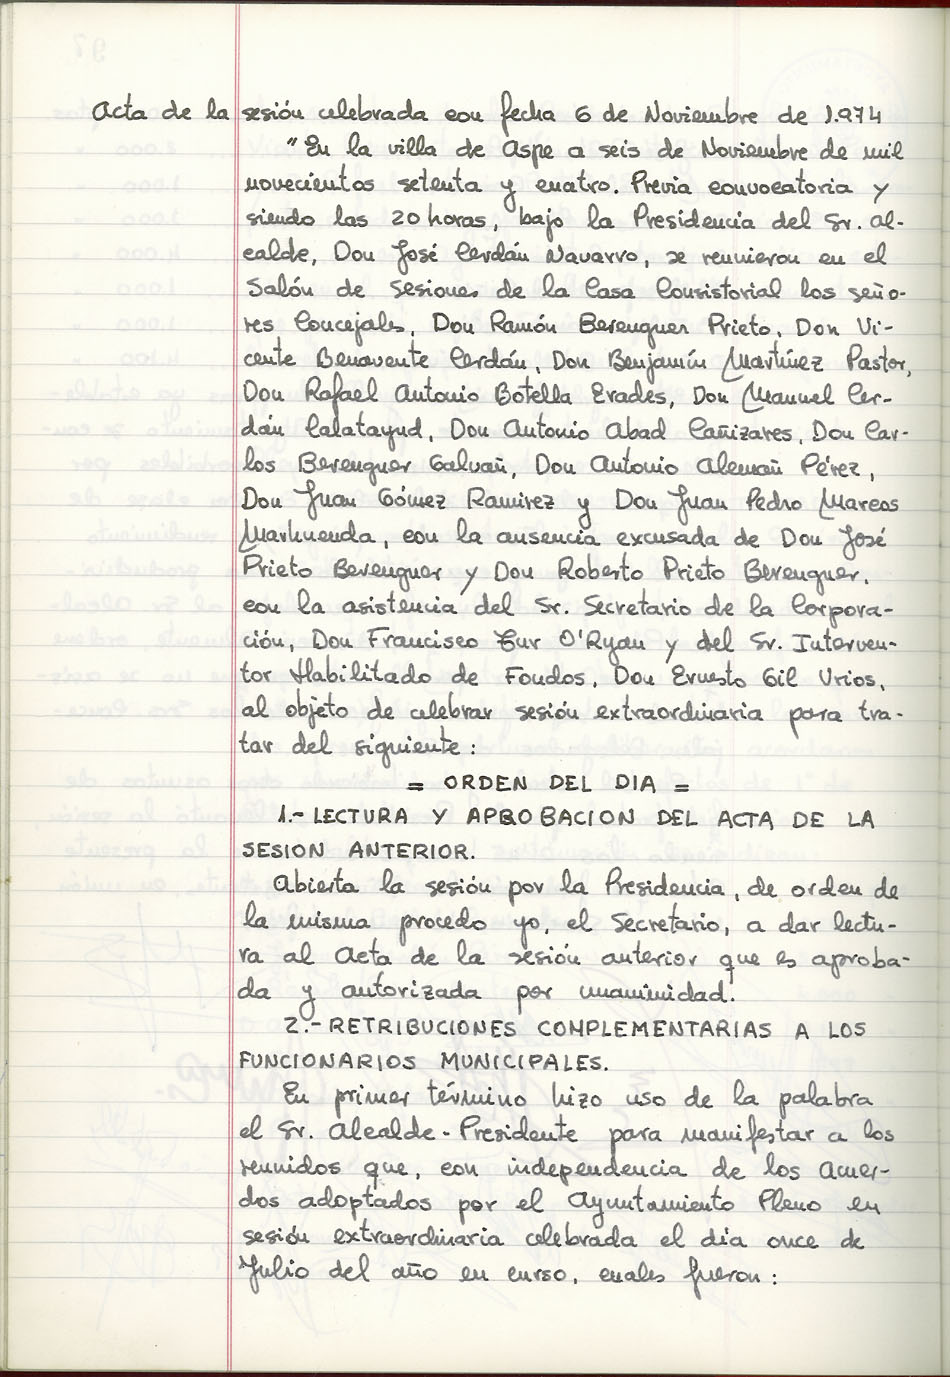 Acta de la sesión celebrada con fecha 6 de Noviembre de 1.974
"En la villa de Aspe a seis de Noviembre de mil
novecientos setenta y cuatro. Previa convocatoria y
siendo las 20 horas, bajo la Presidencia del Sr. Al-
calde, Don José Cerdán Navarro, se reunieron en el
Salón de Sesiones de la Casa Consistorial los seño-
res Concejales, Don Ramón Berenguer Prieto, Don Vi-
cente Benavente Cerdán, Don Benjamín Martínez Pastor,
Don Rafael Antonio Botella Erades, Don Manuel Cer-
dán Calatayud, Don Antonio Abad Cañizares, Don Car-
los Berenguer Galvañ, Don Antonio Alemañ Pérez,
Don Juan Gómez Ramirez y Don Juan Pedro Marcos
Marhuenda, con la ausencia excusada de Don José
Prieto Berenguer y Don Roberto Prieto Berenguer,
con la asistencia del Sr. Secretario de la Corpora-
ción, Don Francisco Tur O'Ryan y del Sr. Interven-
tor Habilitado de Fondos, Don Ernesto Gil Urios,
al objeto de celebrar sesión extraordinaria para tra-
tar del siguiente:
= ORDEN DEL DIA =
1.- LECTURA Y APROBACION DEL ACTA DE LA
SESION ANTERIOR.
Abierta la sesión por la Presidencia, de orden de
la misma procedo yo, el Secretario, a dar lectu-
ra al Acta de la sesión anterior que es aproba-
da y autorizada por unanimidad.
2.- RETRIBUCIONES COMPLEMENTARIAS A LOS
FUNCIONARIOS MUNICIPALES.
En primer término hizo uso de la palabra
el Sr. Alcalde-Presidente para manifestar a los
reunidos que, con independencia de los Acuer-
dos adoptados por el Ayuntamiento Pleno en
sesión extraordinaria celebrada el día once de
Julio del año en curso, cuales fueron: